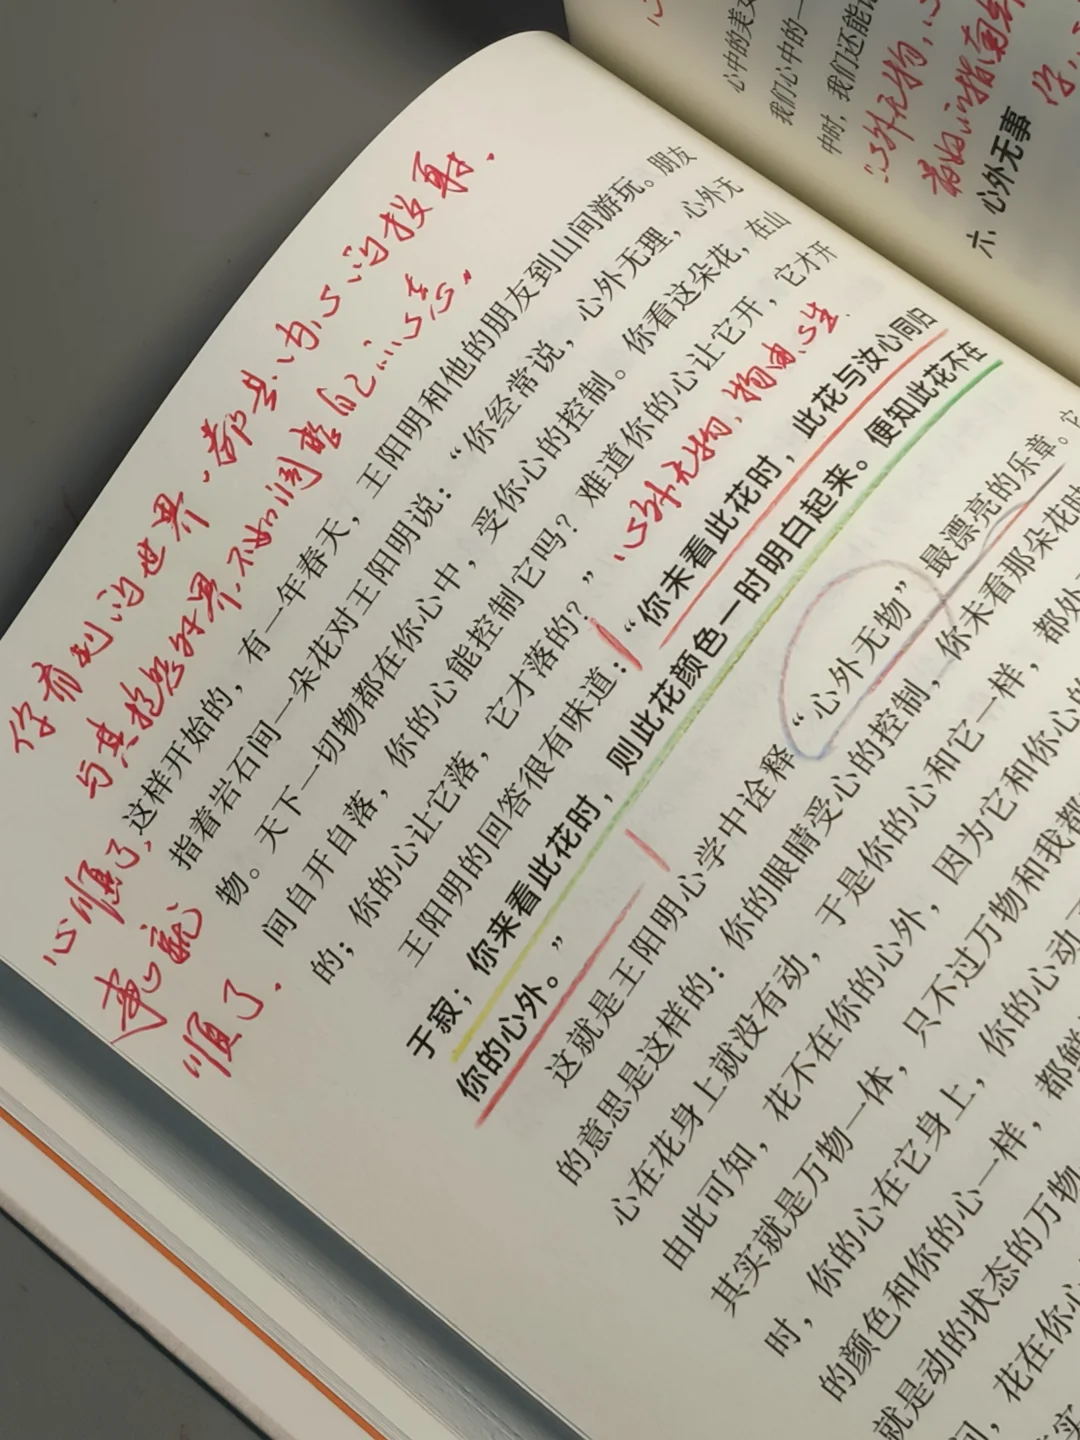 心中的美
我们心中的一
中时，我们还能
心外无物，心
六 心外无事
你看到的世界，都是内心的投射.
与其抱怨世界.不如调整自己的心态。
心顺了，
事就
顺了.
这样开始的，有一年春天，王阳明和他的朋友到山间游玩。朋友
指着岩石间一朵花对王阳明说：“你经常说，心外无理，心外无
物。天下一切物都在你心中，受你心的控制。你看这朵花，在山
间自开自落，你的心能控制它吗？难道你的心让它开，它才开
的；你的心让它落，它才落的？”
心外无物，物由心生.
王阳明的回答很有味道：“你未看此花时，此花与汝心同归
于寂；你来看此花时，则此花颜色一时明白起来。便知此花不在
你的心外。”
这就是王阳明心学中诠释“心外无物”最漂亮的乐章。它
的意思是这样的：你的眼睛受心的控制，你未看那朵花时
心在花身上就没有动，于是你的心和它一样，都处
由此可知，花不在你的心外，因为它和你心的
其实就是万物一体，只不过万物和我都
时，你的心在它身上，你的心动
的颜色和你的心一样，都鲜
就是动的状态的万物
间，花在你心